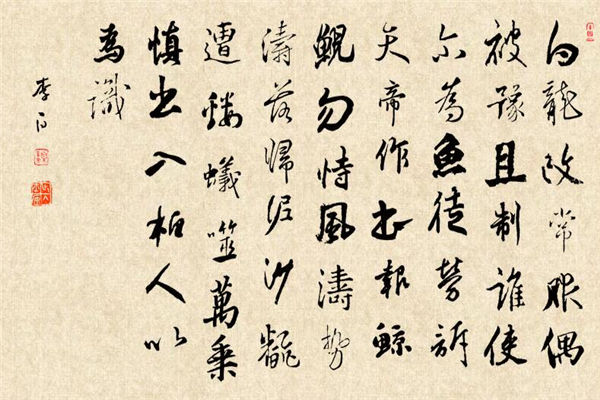 白龍改常服偶
被豫且制誰使
尔為魚徒勞訴
天帝作書報鯨
鯢勿恃風濤勢
濤落歸泥沙飜
遭螻蟻噬萬乘
慎出入柏人以
為識
李白